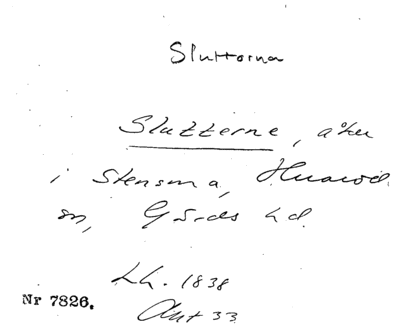 Sluttorna
Slutterne, åker
i Stensma, Huaröd
sn, Gärds hd.
Lh. 1838
Akt 33
Nr 7826.